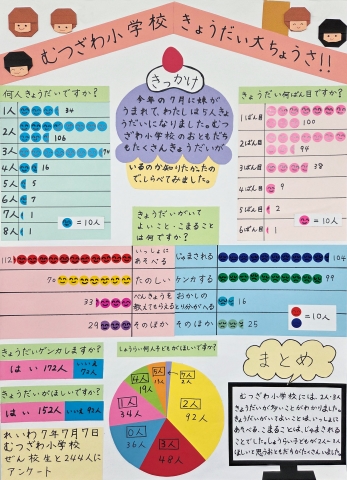 むつざわ小学校 きょうだい大ちょうさ!!
きっかけ
今年の7月に妹が
うまれて、わたしは5人きょ
うだいになりました。むつ
ざわ小学校のおともだち
もたくさんきょうだいが
いるのか知りたかったの
で、しらべてみました。
何人きょうだいですか?
1人 34
2人 106
3人 74
4人 16
5人 5
6人 7
7人 1
8人 1
=10人
きょうだい何ばん目ですか?
1ばん目 100
2ばん目 94
3ばん目 38
4ばん目 9
5ばん目 2
6ばん目 1
=10人
きょうだいがいて
よいこと・こまること
は何ですか?
112 いっしょにあそべる じゃまされる 104
70 たのしい ケンカする 99
33 べんきょうを教えてもらえる おかしのとり分がへる 16
29 そのほか そのほか 25
=10人
きょうだいゲンカしますか?
はい 172人 いいえ 72人
きょうだいがほしいですか?
はい 152人 いいえ 92人
れいわ7年7月7日
むつざわ小学校
ぜん校生と244人に
アンケート
しょうらい何人子どもがほしいですか?
2人 92人
3人 48人
0人 36人
1人 34人
4人 19人
まとめ
むつざわ小学校には、2人・3人
きょうだいが多いことがわかりました。
きょうだいがいてよいことは、いっしょに
あそべる、こまることは、じゃまされる
ことでした。しょうらい子どもが2人〜3人
ほしいと思うおともだちがたくさんいました。